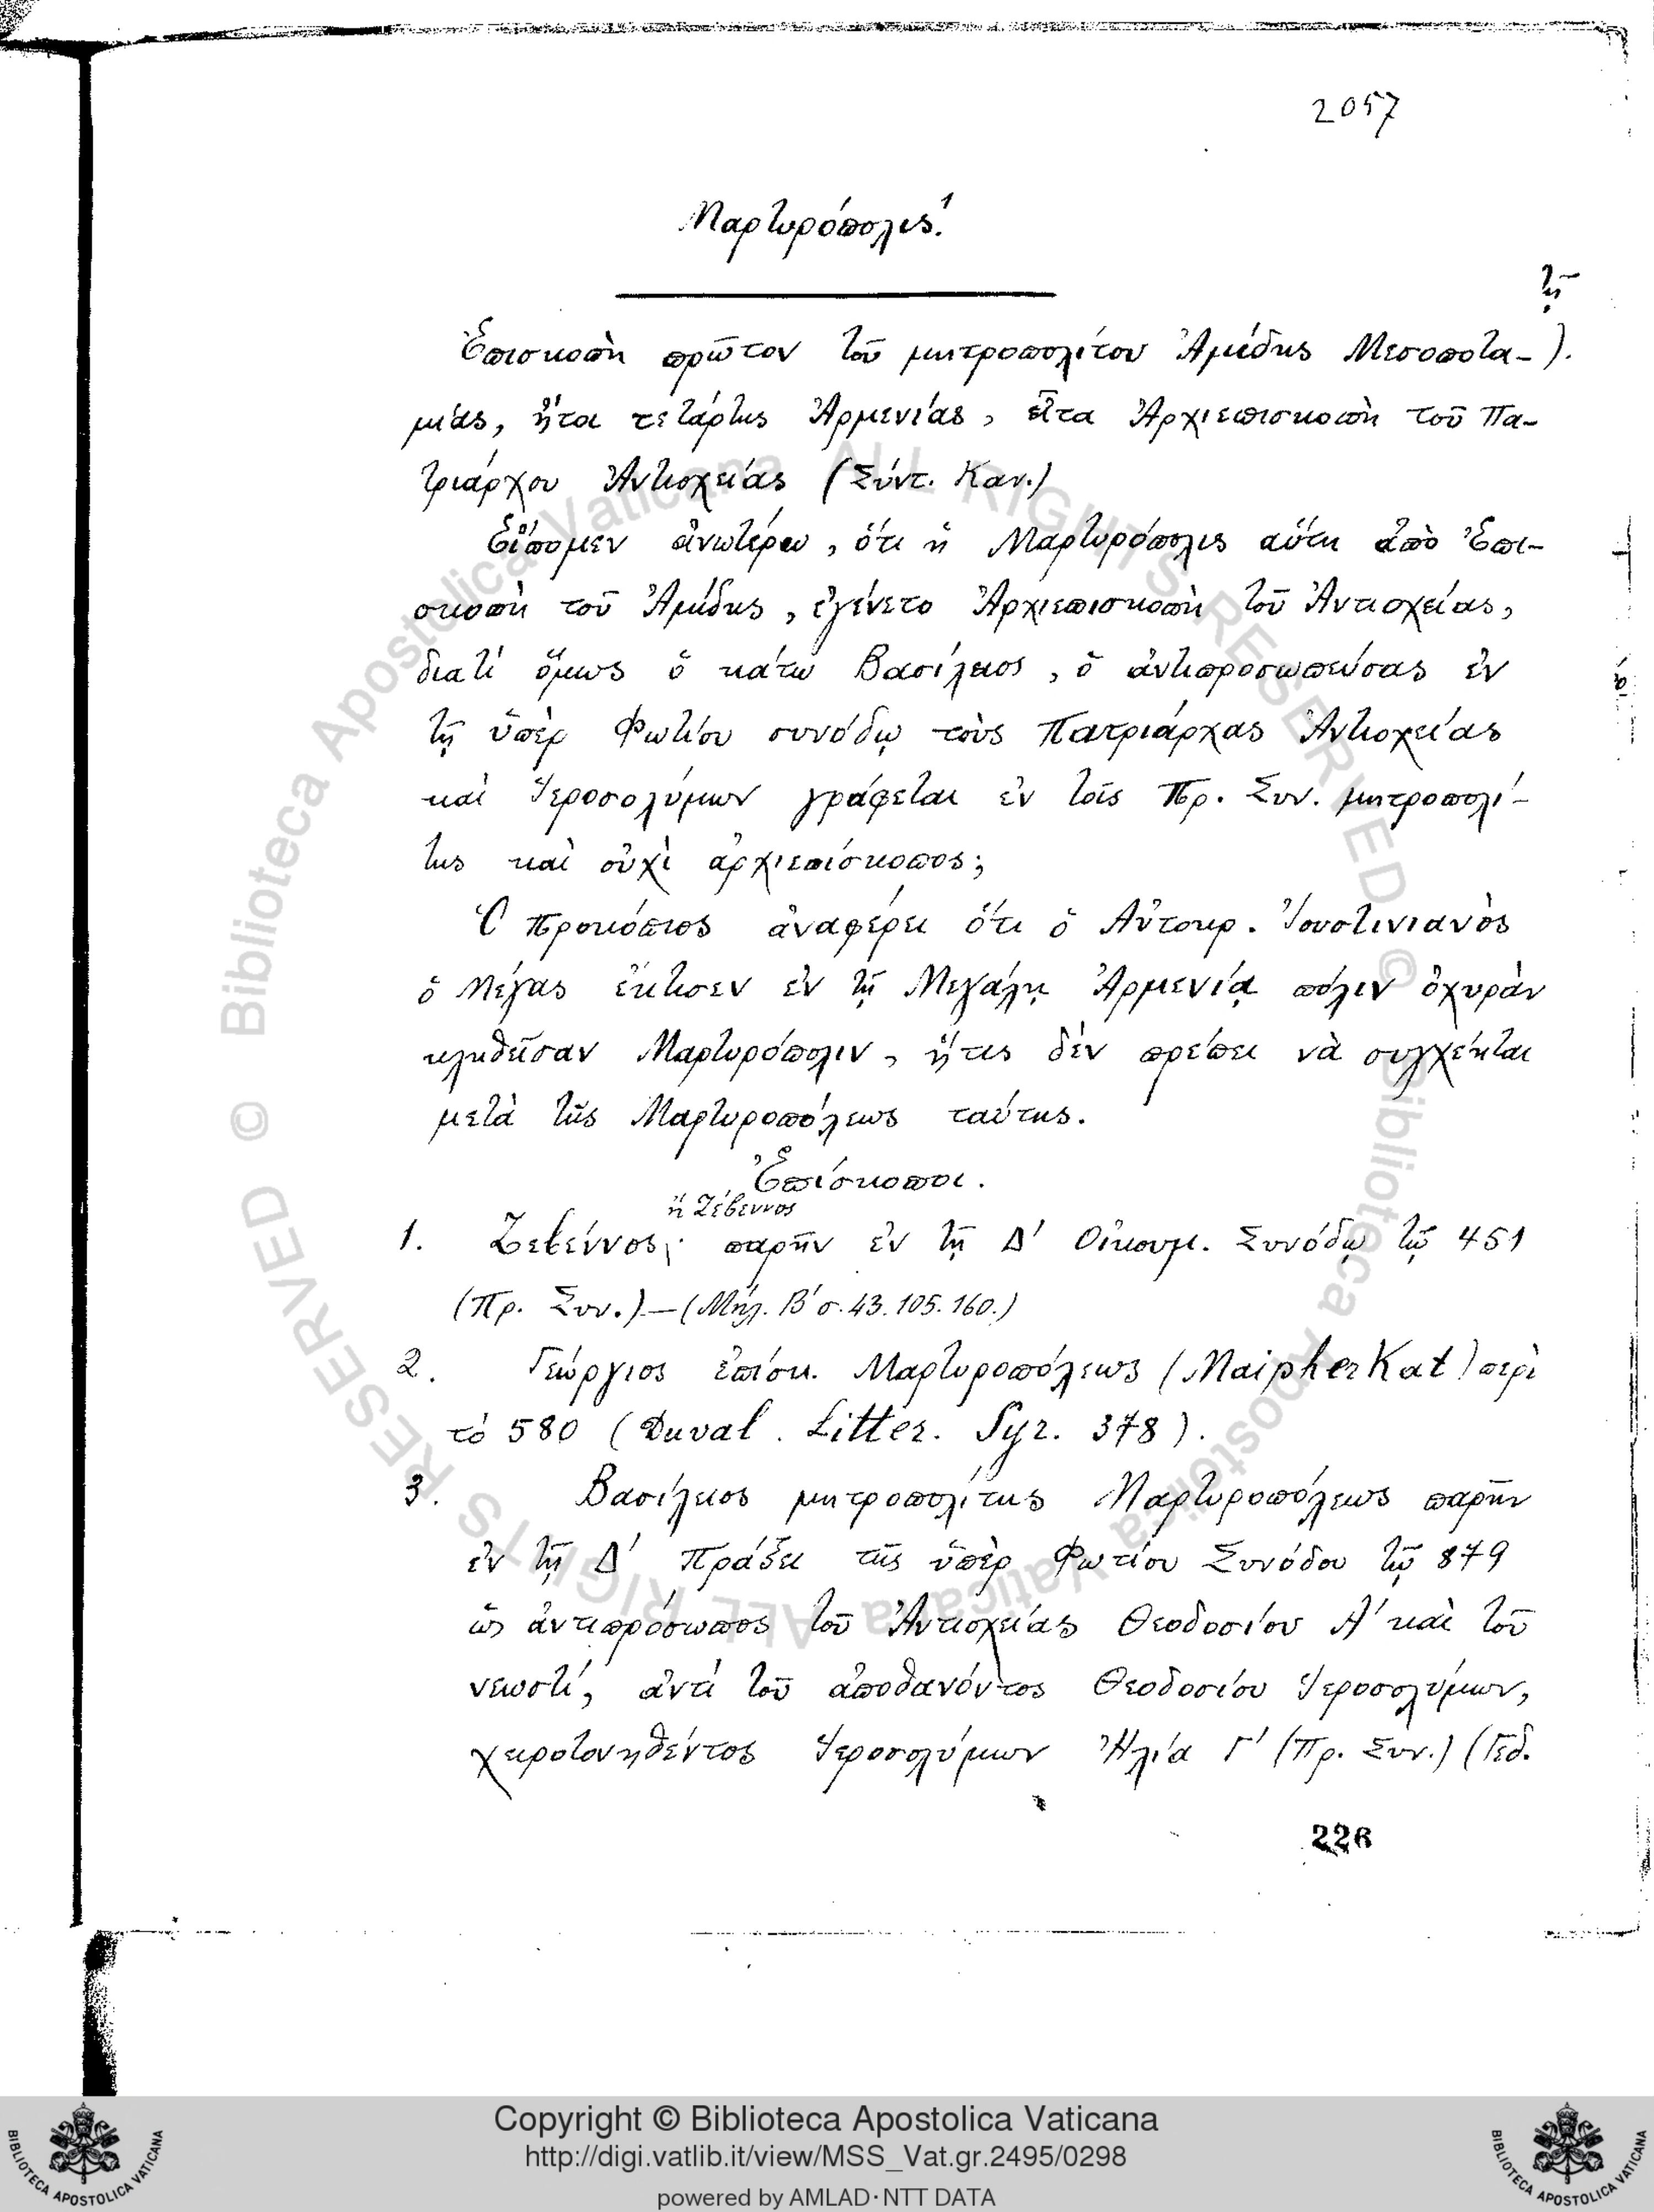 2057
Μαρτυρόπολις¹.
τῇ
Ἐπισκοπὴ πρῶτον τοῦ μητροπολίτου Ἀμίδης Μεσοποτα- ).
μίας, ἤτοι τετάρτης Ἀρμενίας, εἶτα Ἀρχιεπισκοπὴ τοῦ Πα-
τριάρχου Ἀντιοχείας (Σύντ. Καν.)
Εἴπομεν ἀνωτέρω, ὅτι ἡ Μαρτυρόπολις αὕτη ἀπὸ Ἐπι-
σκοπὴ τοῦ Ἀμίδης, ἐγένετο Ἀρχιεπισκοπὴ τοῦ Ἀντιοχείας,
διατί ὅμως ὁ κάτω Βασίλειος, ὁ ἀντιπροσωπεύσας ἐν
τῇ ὑπὲρ Φωτίου συνόδῳ τοὺς Πατριάρχας Ἀντιοχείας
καὶ Ἱεροσολύμων γράφεται ἐν τοῖς Πρ. Συν. μητροπολί-
της καὶ οὐχὶ ἀρχιεπίσκοπος;
Ὁ Προκόπιος ἀναφέρει ὅτι ὁ Αὐτοκρ. Ἰουστινιανὸς
ὁ Μέγας ἔκτισεν ἐν τῇ Μεγάλῃ Ἀρμενίᾳ πόλιν ὀχυρὰν
κληθεῖσαν Μαρτυρόπολιν, ἥτις δέν πρέπει νὰ συγχέηται
μετὰ τῆς Μαρτυροπόλεως ταύτης.
Ἐπίσκοποι.
ἢ Ζέβεννος
1. Ζεβέννος, παρῆν ἐν τῇ Δ' Οἰκουμ. Συνόδῳ τῷ 451
(Πρ. Συν.)—(Μήλ. Β' σ. 43. 105. 160.)
2. Γεώργιος ἐπίσκ. Μαρτυροπόλεως (MaipherKat) περὶ
τό 580 (Duval. Litter. Syr. 378).
3. Βασίλειος μητροπολίτης Μαρτυροπόλεως παρῆν
ἐν τῇ Δ' Πράξει τῆς ὑπὲρ Φωτίου Συνόδου τῷ 879
ὡς ἀντιπρόσωπος τοῦ Ἀντιοχείας Θεοδοσίου Α' καὶ τοῦ
νεωστί, ἀντί τοῦ ἀποθανόντος Θεοδοσίου Ἱεροσολύμων,
χειροτονηθέντος Ἱεροσολύμων Ἠλία Γ' (Πρ. Συν.) (Γεδ.
226
Biblioteca Apostolica Vaticana ALL RIGHTS RESERVED ©
Biblioteca Apostolica Vaticana ALL RIGHTS RESERVED ©
Copyright © Biblioteca Apostolica Vaticana
http://digi.vatlib.it/view/MSS_Vat.gr.2495/0298
powered by AMLAD·NTT DATA
BIBLIOTECA APOSTOLICA VATICANA
BIBLIOTECA APOSTOLICA VATICANA